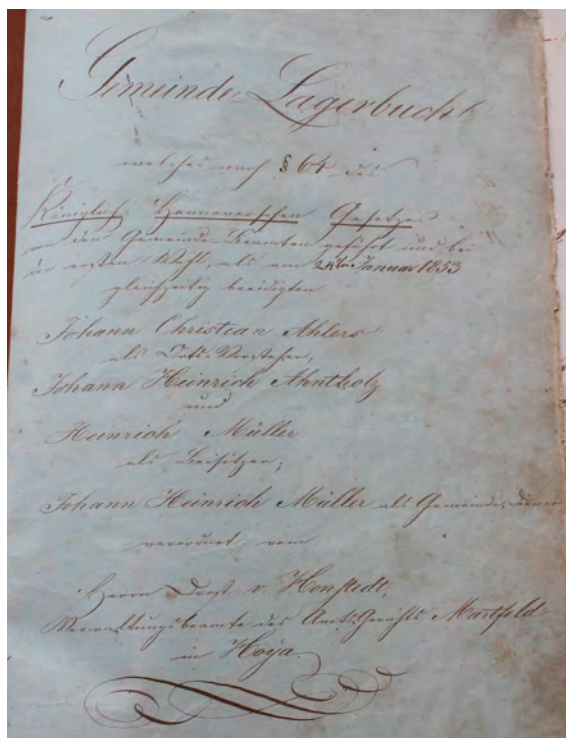 Gemeinde-Lagerbuch
welches nach § 64 des
Königlich Hannoverschen Gesetzes
von den Gemeinde-Beamten geführt und bei
der ersten Wahl, als am 24ten Januar 1853
gleichzeitig beeidigten
Johann Christian Ahlers
als Orts-Vorsteher,
Johann Heinrich Ahntholz
und
Heinrich Müller
als Beisitzer;
Johann Heinrich Müller als Gemeinde-Diener
verordnet vom
Herrn Drost v. Honstedt,
Verwaltungsbeamte des Amts-Gerichts Martfeld
in Hoÿa.